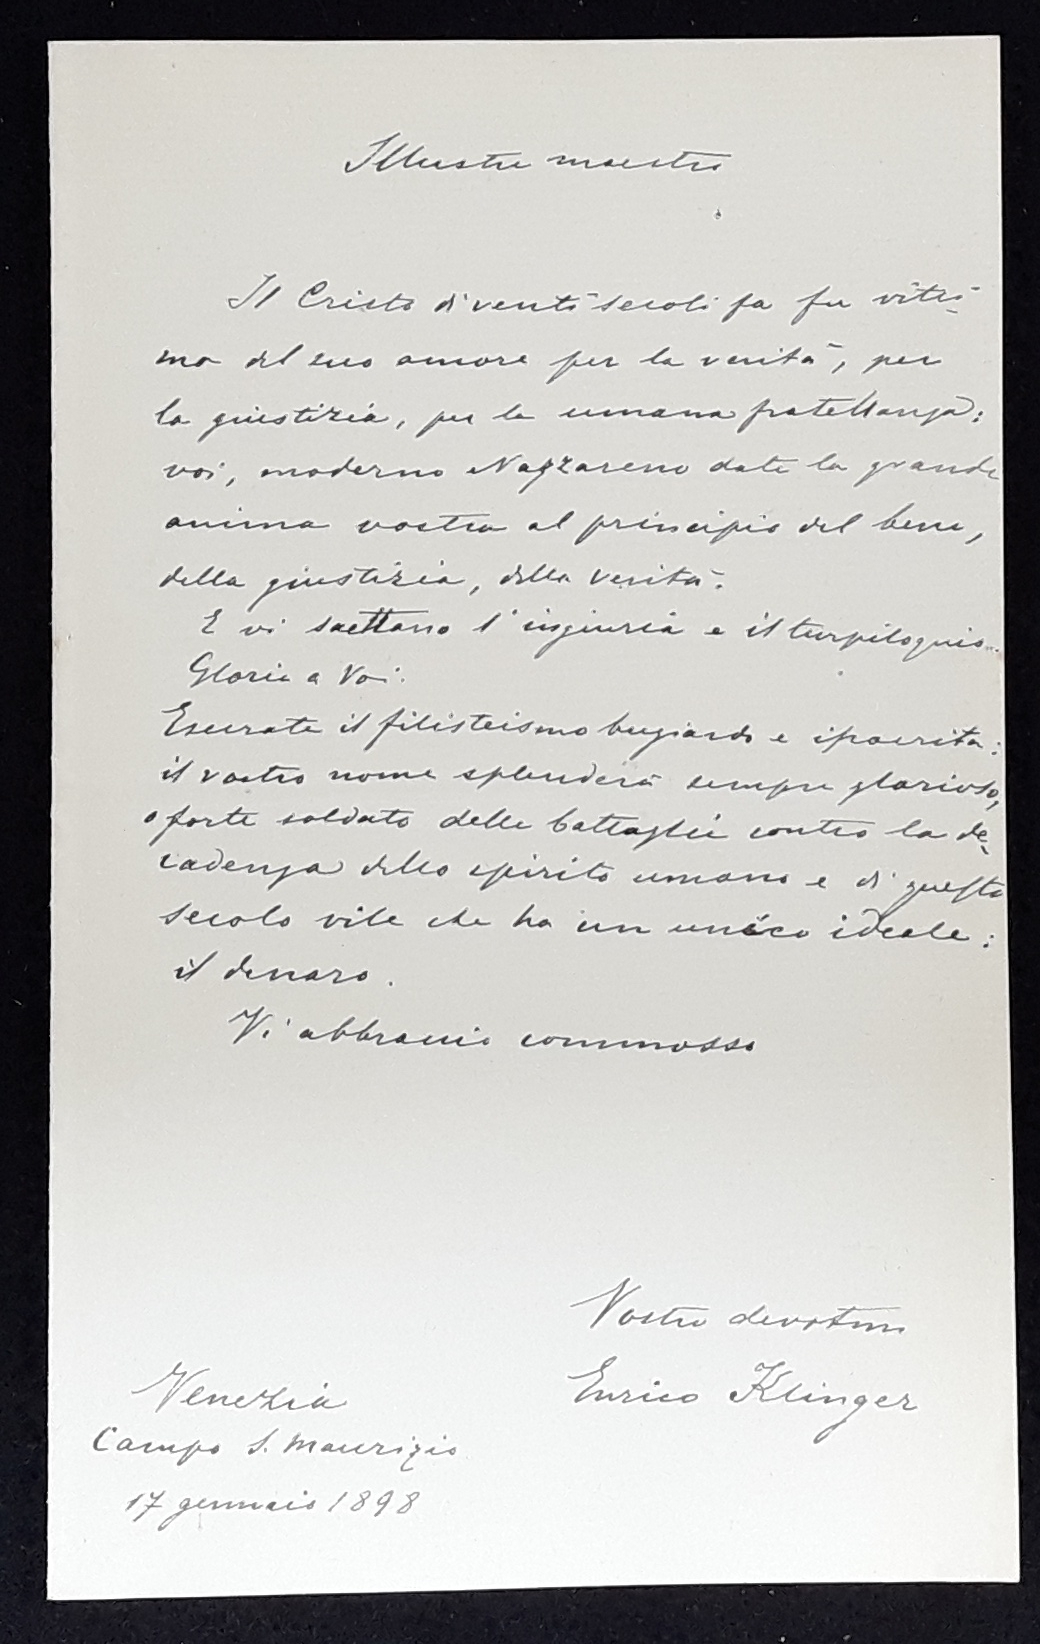 Illustre maestro
Il Cristo di venti secoli fa fu vitti-
ma del suo amore per la verità, per
la giustizia, per la umana fratellanza:
voi, moderno Nazzareno date la grande
anima vostra al principio del bene,
della giustizia, della verità.
E vi saettano l'ingiuria e il turpiloquio...
Gloria a Voi.
Esecrate il filisteismo bugiardo e ipocrita:
il vostro nome splenderà sempre glorioso,
o forte soldato delle battaglie contro la de-
cadenza dello spirito umano e di questo
secolo vile che ha un unico ideale:
il denaro.
Vi abbraccio commosso
Vostro devotmo
Enrico Klinger
Venezia
Campo S. Maurizio
17 gennaio 1898